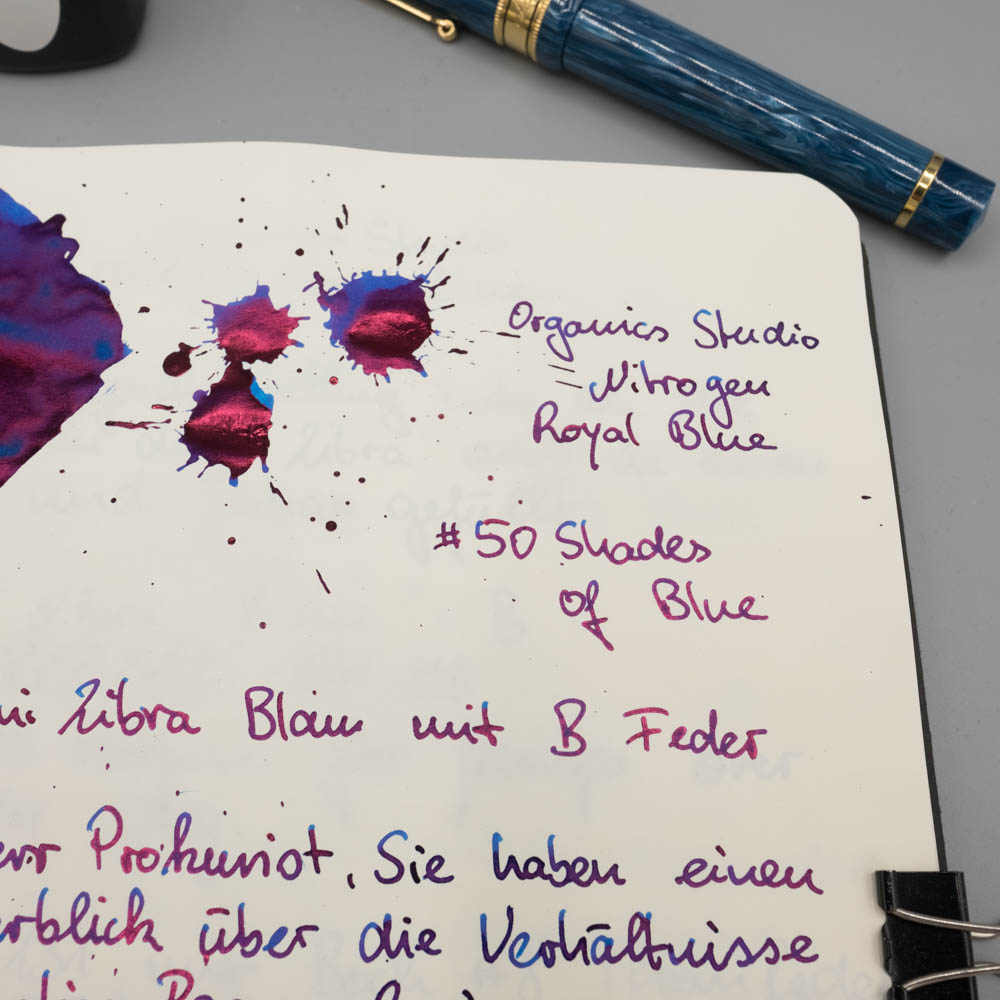 Organics Studio
Nitrogen
Royal Blue
#50 Shades
of Blue
Libra Blau mit B Feder
Prokurist, Sie haben einen
über die Verhältnisse